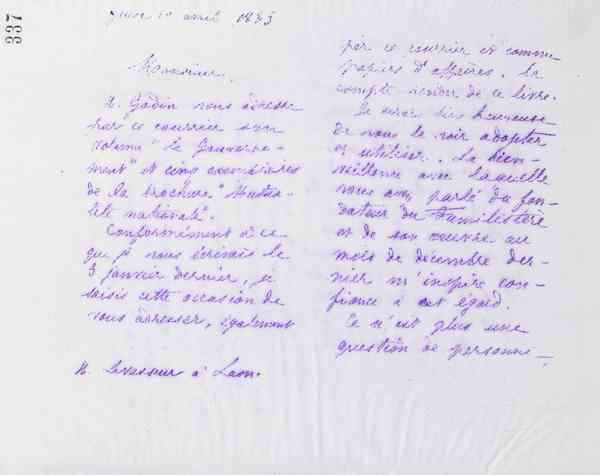 337
Guise 10 avril 1883
Monsieur,
M. Godin vous adresse
par ce courrier son
volume "Le Gouverne-
ment" et cinq exemplaires
de la brochure "Mutua-
lité nationale".
Conformément à ce
que je vous écrivais le
3 janvier dernier, je
saisis cette occasion de
vous adresser, également
M. Levasseur à Laon.
par ce courrier et comme
papiers d'affaires, le
compte rendu de ce livre.
Je serai bien heureuse
de vous le voir adopter
et utiliser. La bien-
veillance avec laquelle
vous avez parlé du fon-
dateur du Familistère
et de son oeuvre au
mois de décembre der-
nier m'inspire con-
fiance à cet égard.
Ce n'est plus une
question de personne -